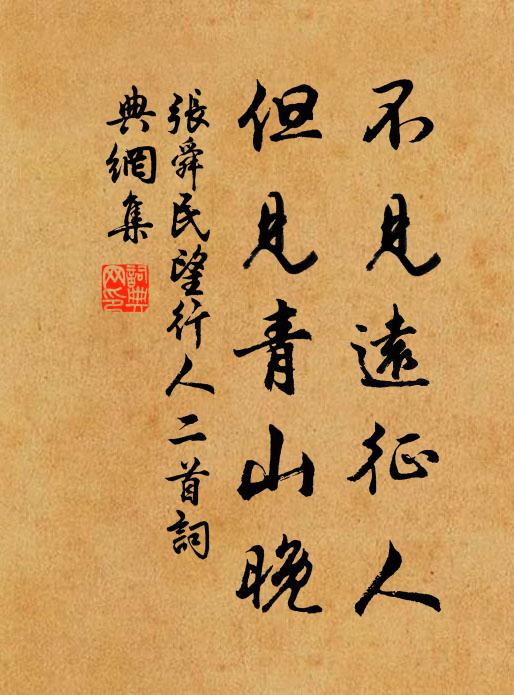 不見遠征人
但見青山晚
張舜民望行人二首詞
典網集
詞典网印